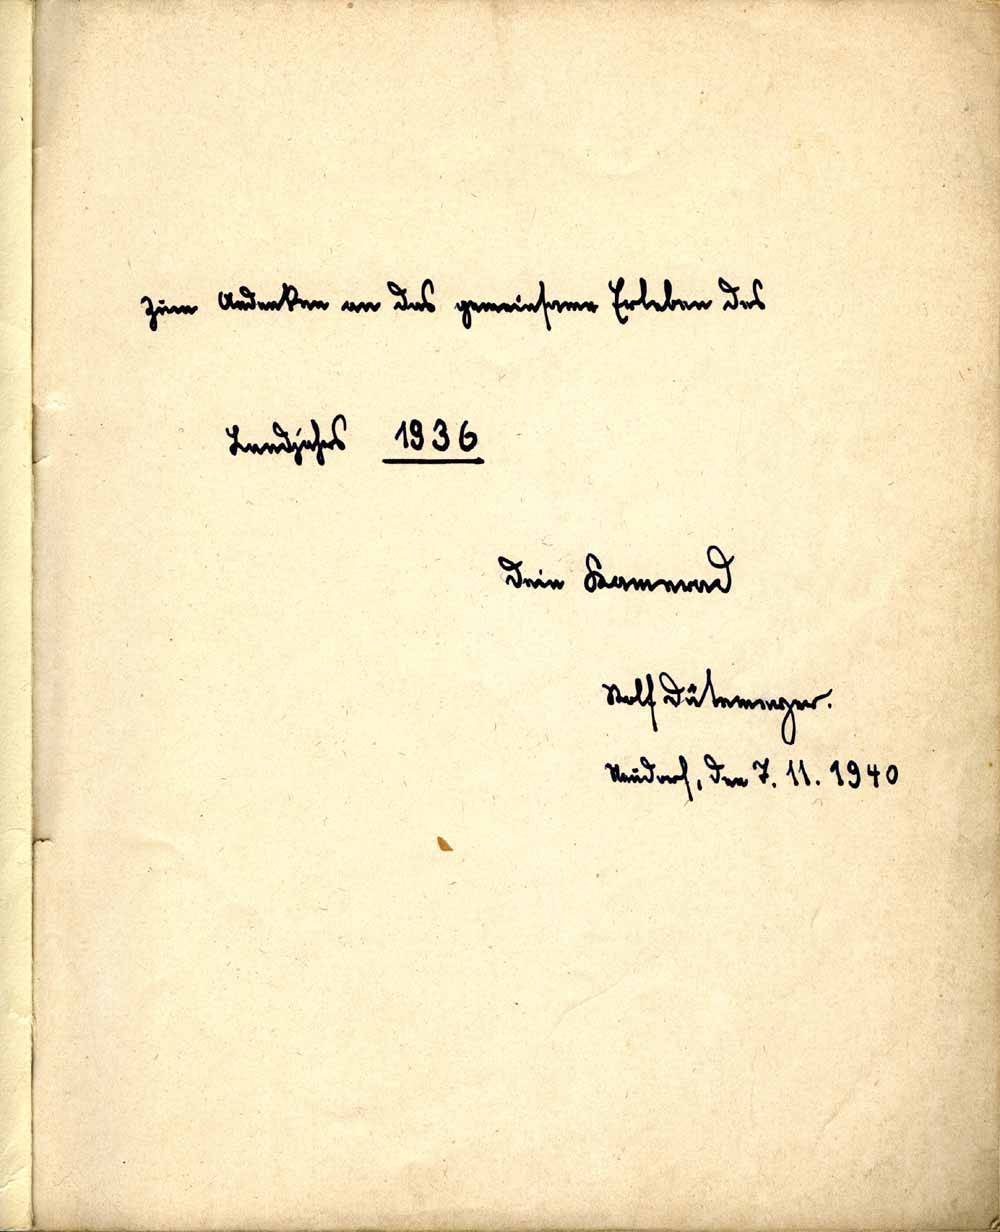 Zum Andenken an das gemeinsame Erleben des
Landjahrs 1936
Dein Kamerad
Rolf Dütemeyer.
Neudorf, den 7. 11. 1940